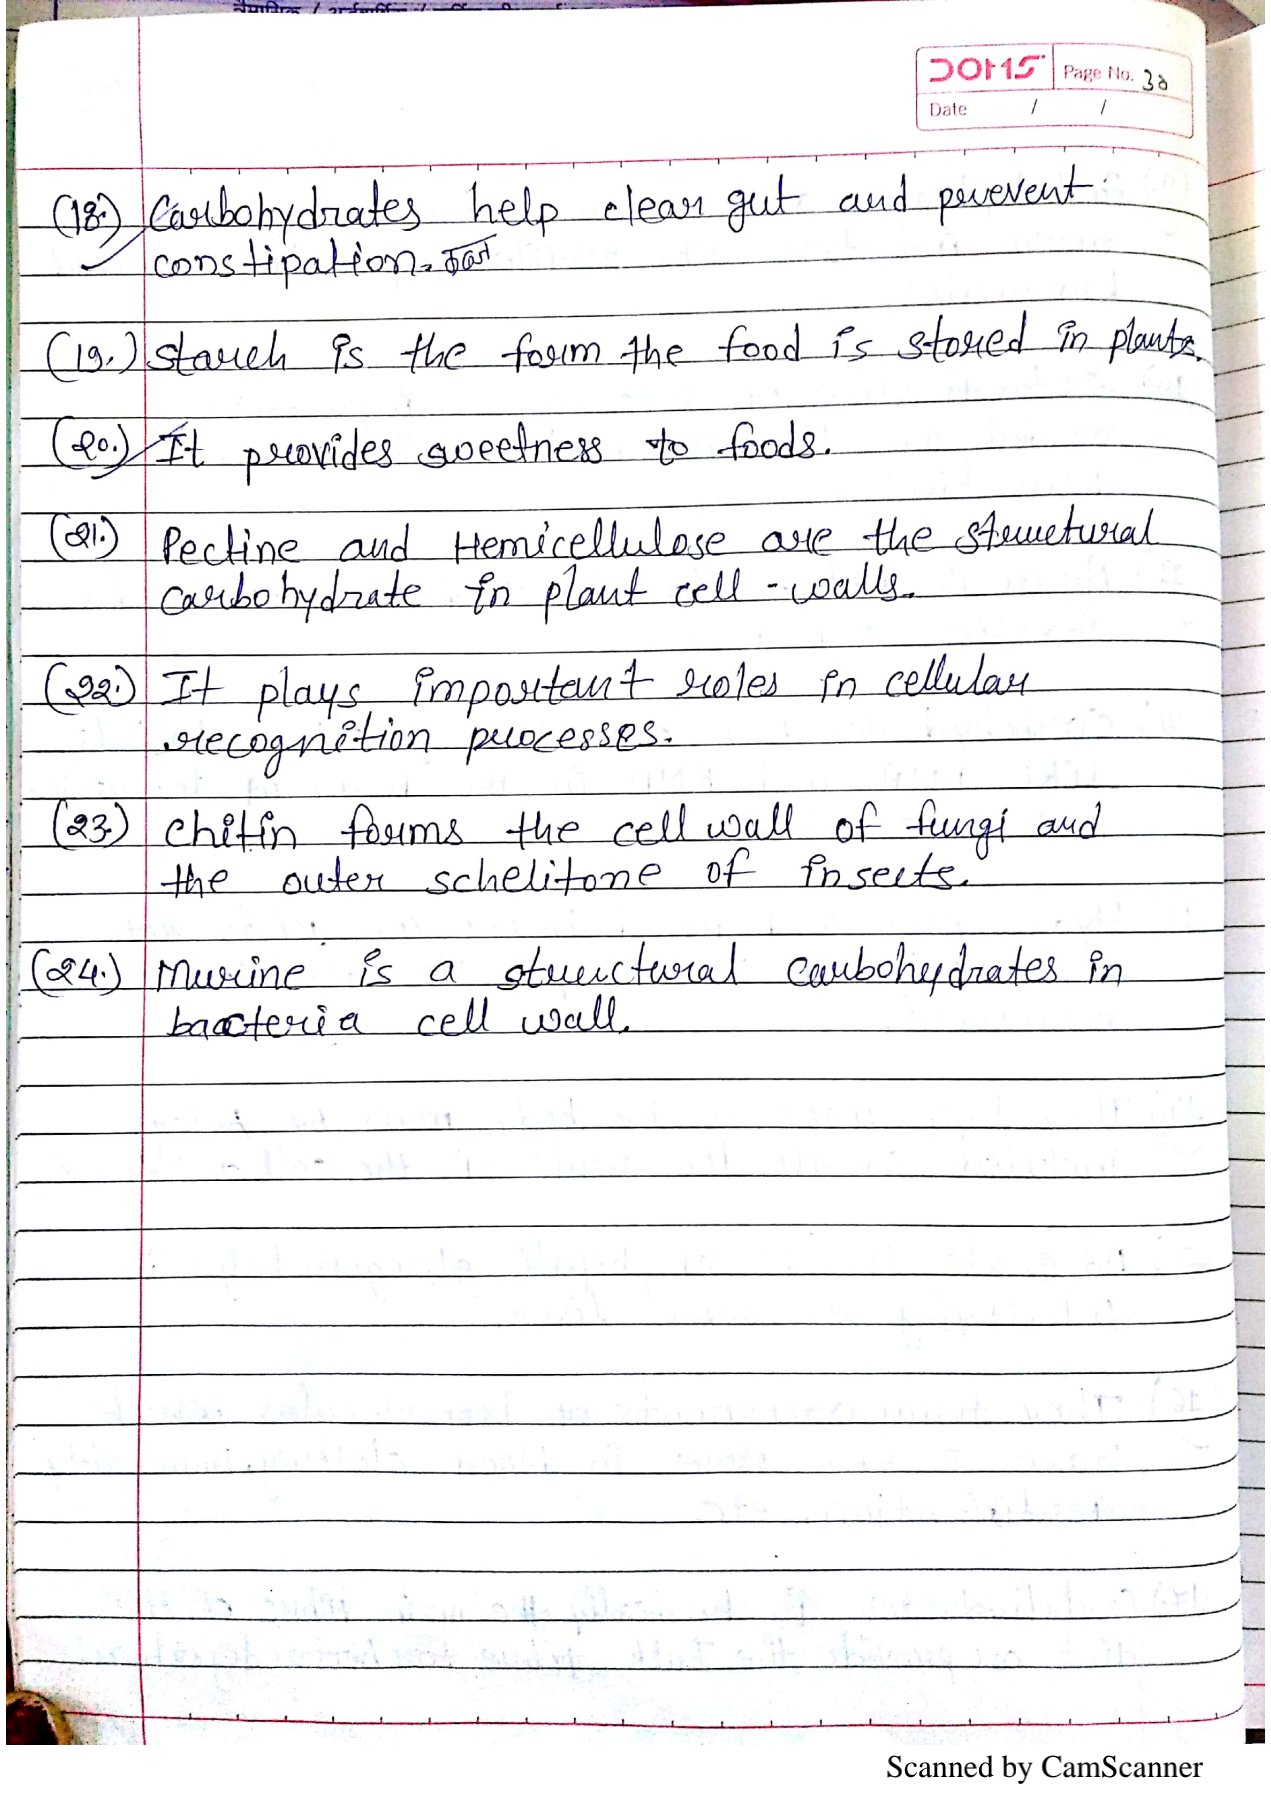 DOMS Page No. 30
Date / /
(18.) Carbohydrates help clean gut and prevent
constipation. कब्ज
(19.) Starch is the form the food is stored in plants.
(20.) It provides sweetness to foods.
(21.) Pectine and Hemicellulose are the structural
carbohydrate in plant cell-walls.
(22.) It plays important roles in cellular
recognition processes.
(23.) Chitin forms the cell wall of fungi and
the outer schelitone of insects.
(24.) Murine is a structural carbohydrates in
bacteria cell wall.
Scanned by CamScanner